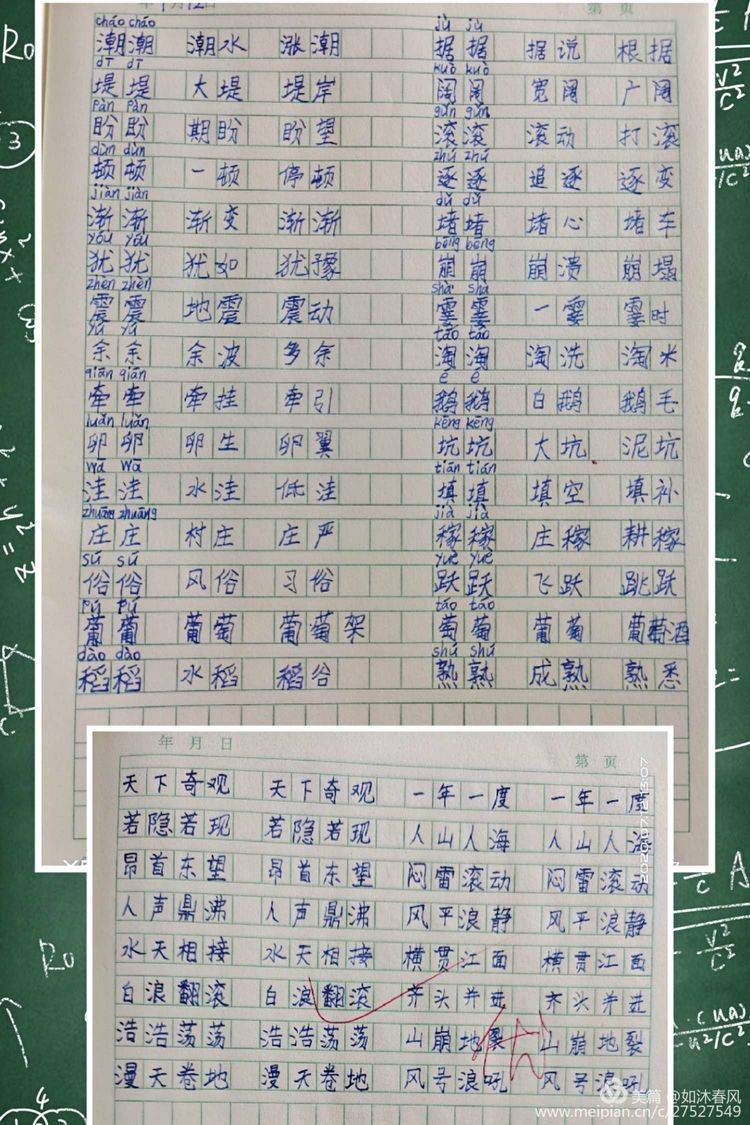 年 1月12日 第 页
cháo cháo jù jù
潮潮 潮水 涨潮 据据 据说 根据
dī dī kuò kuò
堤堤 大堤 堤岸 阔阔 宽阔 广阔
pàn pàn gǔn gǔn
盼盼 期盼 盼望 滚滚 滚动 打滚
dùn dùn zhú zhú
顿顿 一顿 停顿 逐逐 追逐 逐变
jiàn jiàn dǔ dǔ
渐渐 渐变 渐渐 堵堵 堵心 堵车
yóu yóu bēng bēng
犹犹 犹如 犹豫 崩崩 崩溃 崩塌
zhèn zhèn shà shà
震震 地震 震动 霎霎 一霎 霎时
yú yú táo táo
余余 余波 多余 淘淘 淘洗 淘米
qiān qiān é é
牵牵 牵挂 牵引 鹅鹅 白鹅 鹅毛
luǎn luǎn kēng kēng
卵卵 卵生 卵翼 坑坑 大坑 泥坑
wā wā tián tián
洼洼 水洼 低洼 填填 填空 填补
zhuāng zhuāng jià jià
庄庄 村庄 庄严 稼稼 庄稼 耕稼
sú sú yuè yuè
俗俗 风俗 习俗 跃跃 飞跃 跳跃
pú pú táo táo
葡葡 葡萄 葡萄架 萄萄 葡萄 葡萄酒
dào dào shú shú
稻稻 水稻 稻谷 熟熟 成熟 熟悉
年 月 日 第 页
天下奇观 天下奇观 一年一度 一年一度
若隐若现 若隐若现 人山人海 人山人海
昂首东望 昂首东望 闷雷滚动 闷雷滚动
人声鼎沸 人声鼎沸 风平浪静 风平浪静
水天相接 水天相接 横贯江面 横贯江面
白浪翻滚 白浪翻滚 齐头并进 齐头并进
浩浩荡荡 浩浩荡荡 山崩地裂 山崩地裂
漫天卷地 漫天卷地 风号浪吼 风号浪吼
美篇 @如沐春风
www.meipian.cn/c/27527549